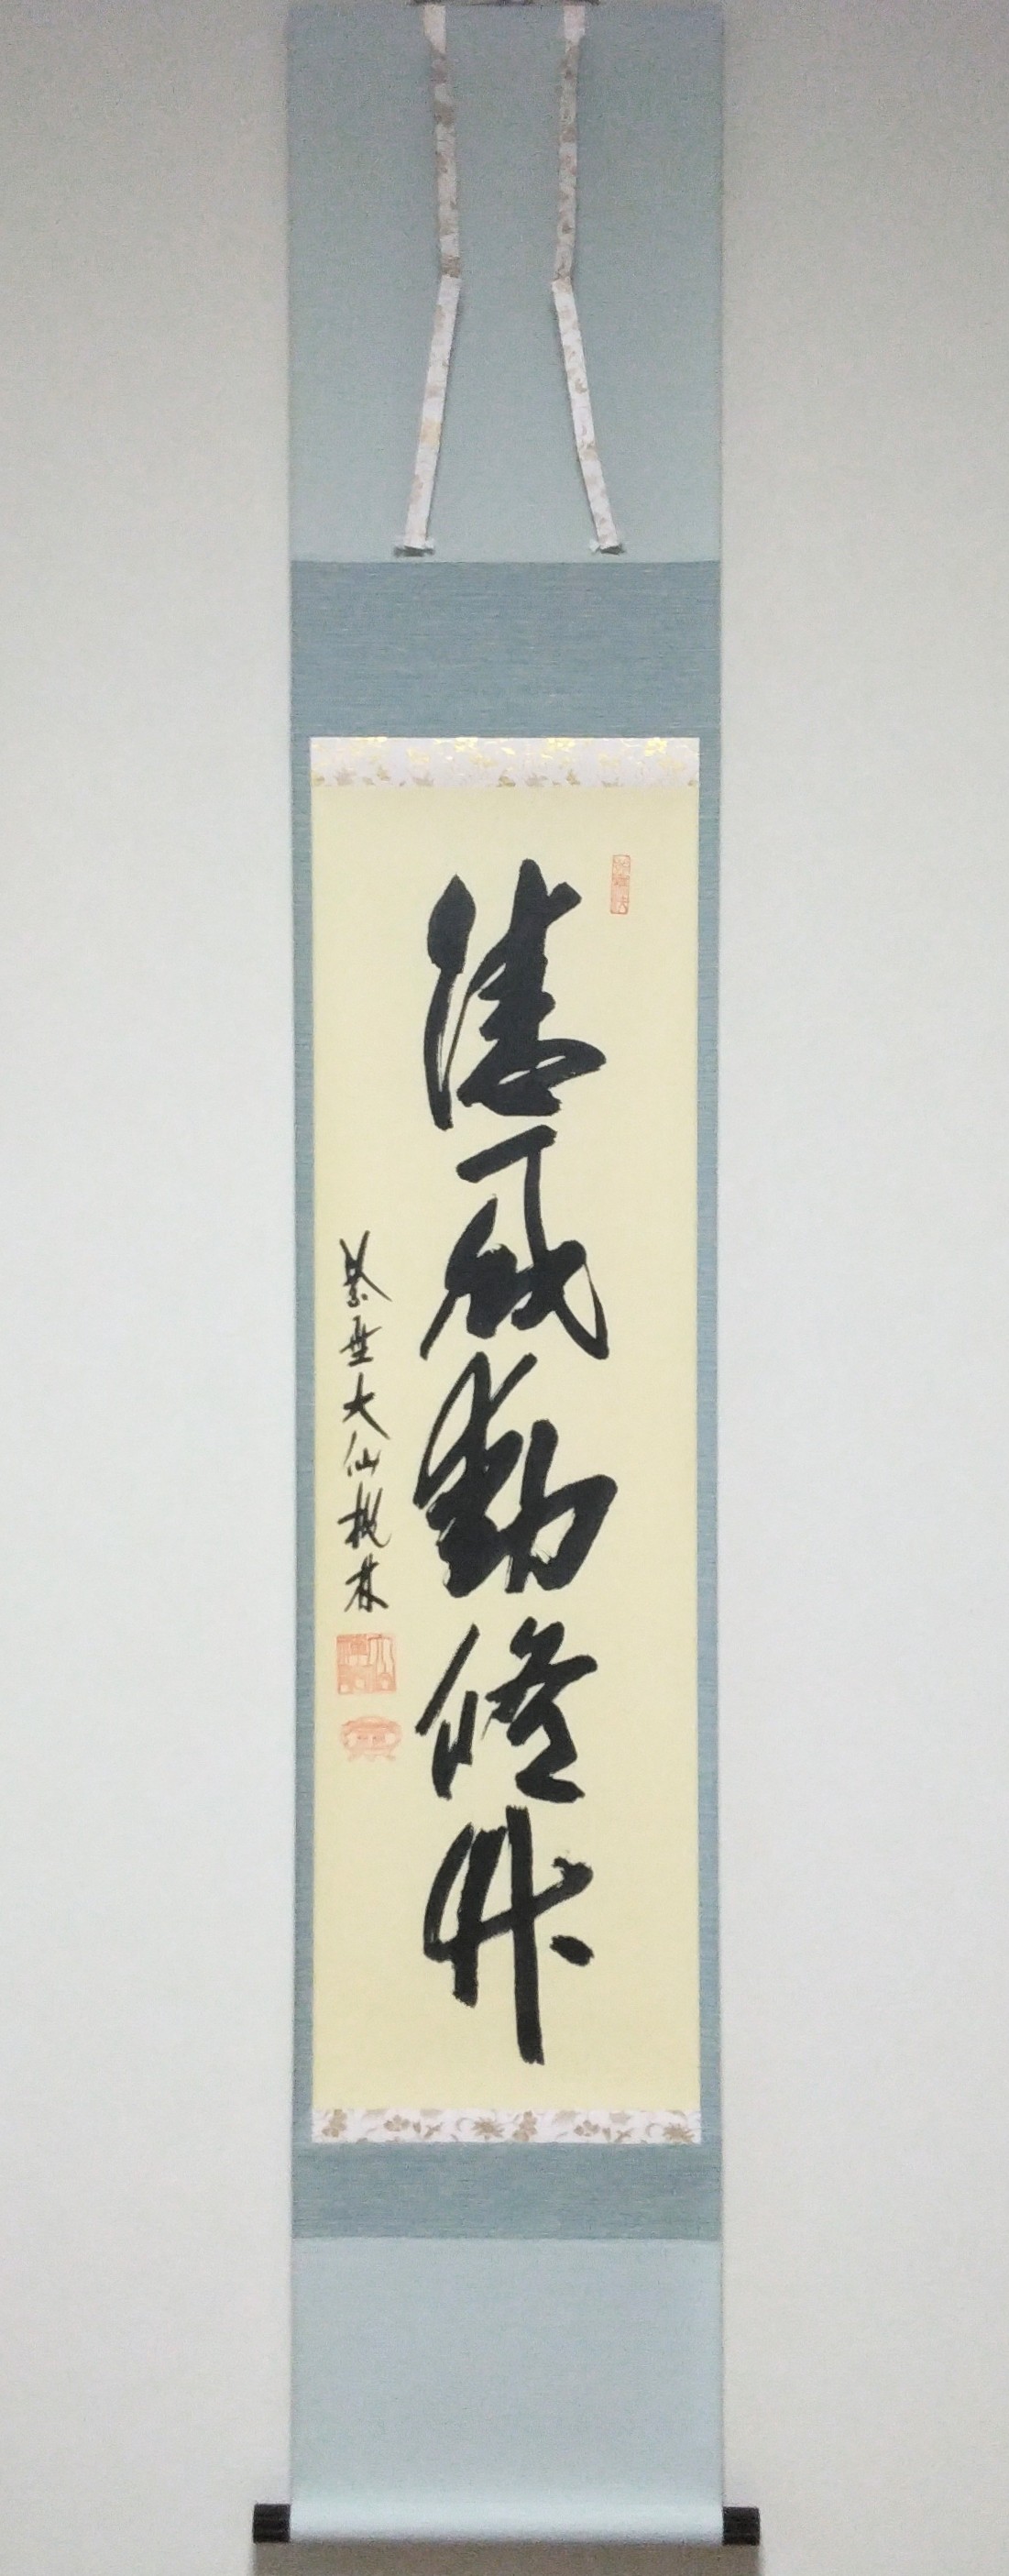 清風動脩竹
紫野大仙桃林